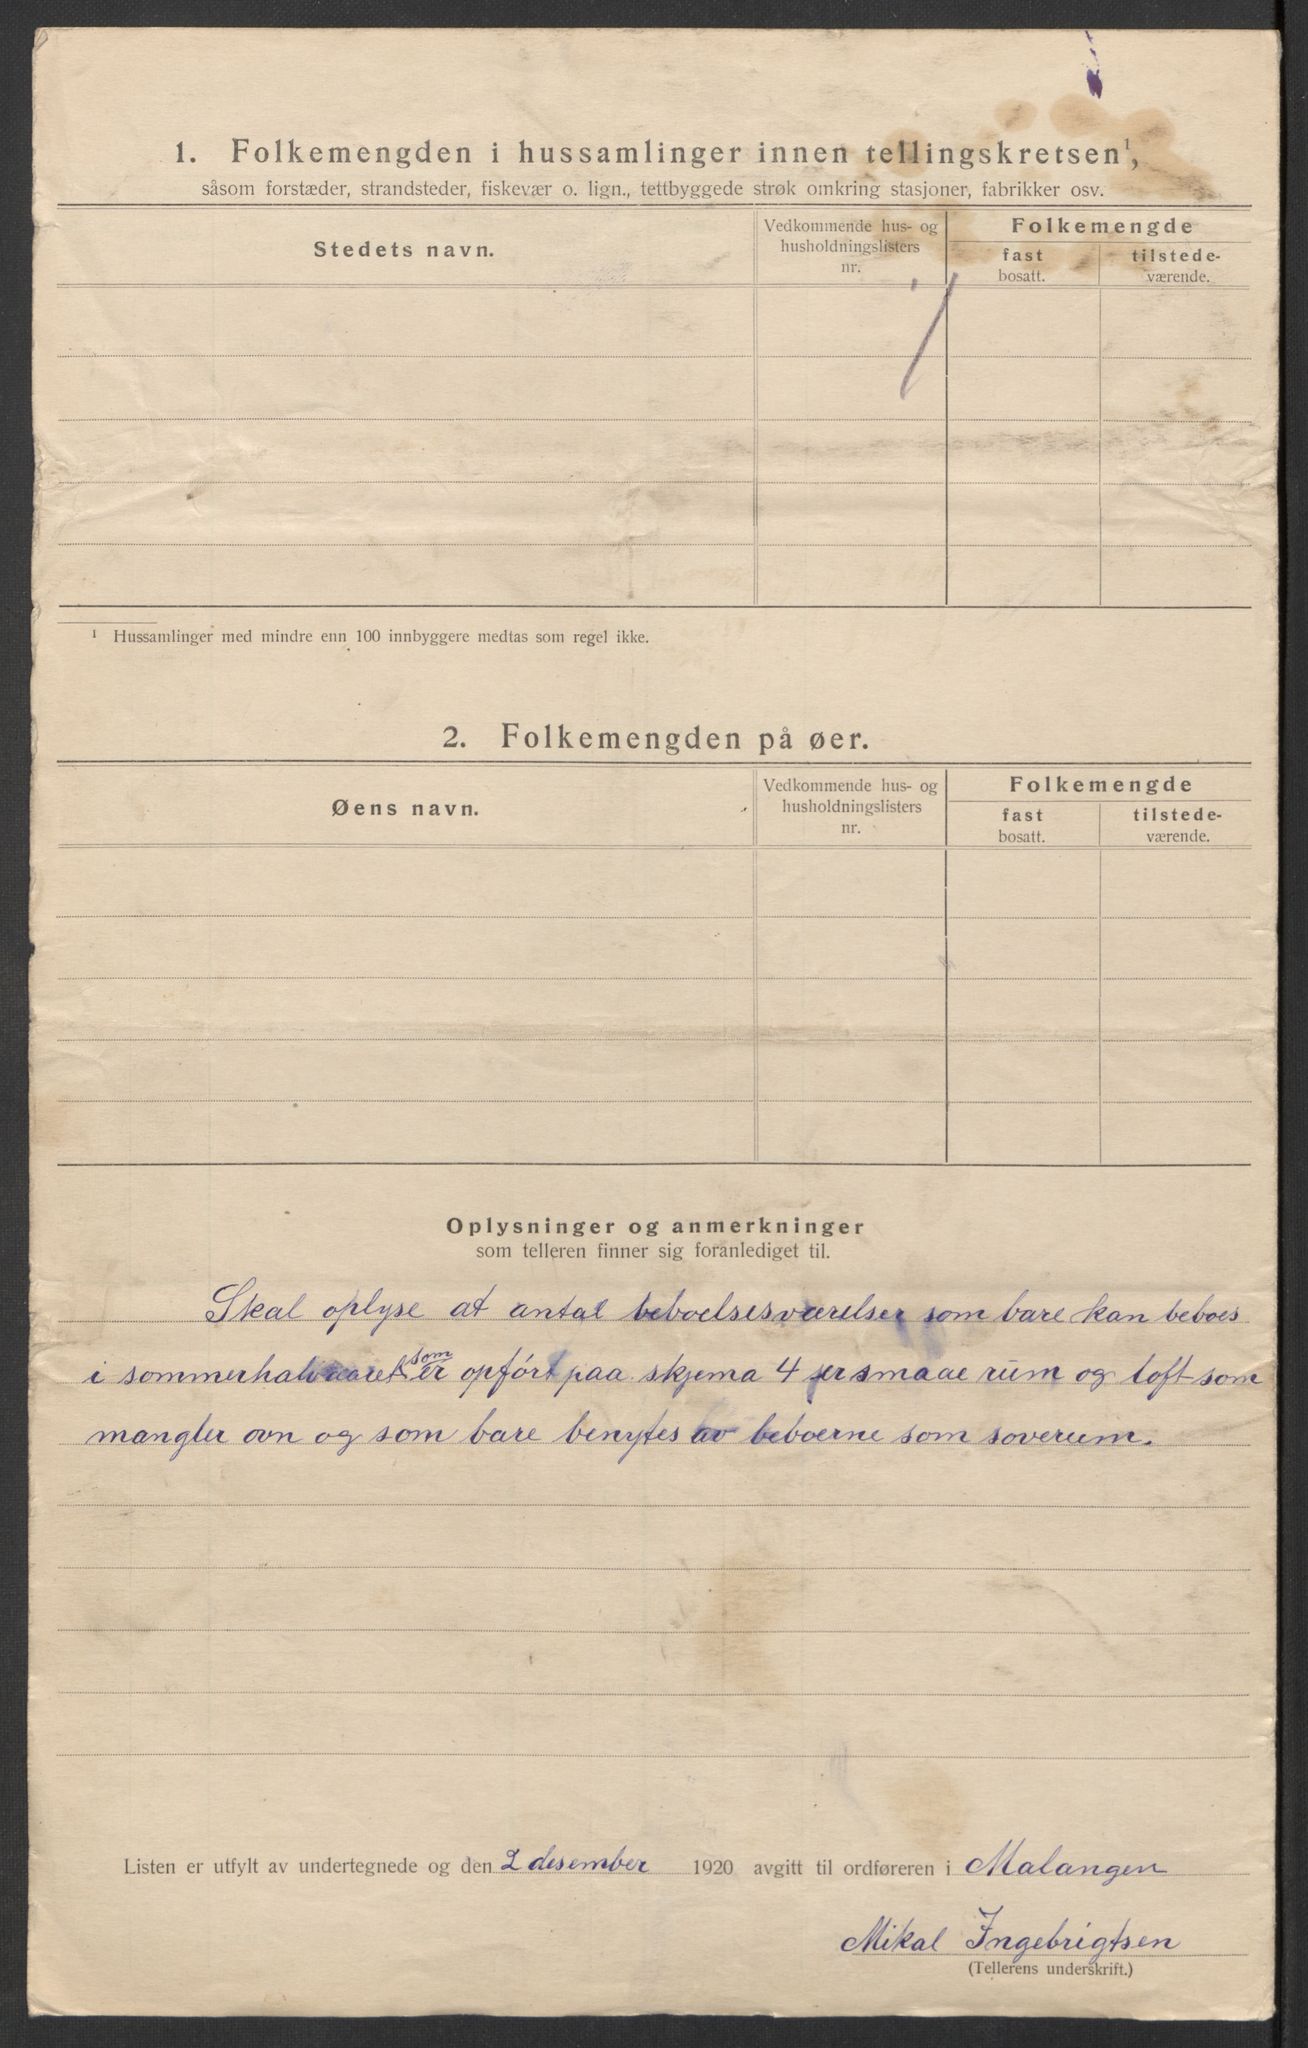 1. Folkemengden i hussamlinger innen tellingskretsen¹,
såsom forstæder, strandsteder, fiskevær o. lign., tettbyggede strøk omkring stasjoner, fabrikker osv.
Stedets navn.
Vedkommende hus- og
husholdningslisters
nr.
Folkemengde
fast
bosatt.
tilstede-
værende.
¹ Hussamlinger med mindre enn 100 innbyggere medtas som regel ikke.
2. Folkemengden på øer.
Øens navn.
Vedkommende hus- og
husholdningslisters
nr.
Folkemengde
fast
bosatt.
tilstede-
værende.
Oplysninger og anmerkninger
som telleren finner sig foranlediget til.
Skal oplyse at antal beboelsesværelser som bare kan beboes
i sommerhalvaaret som er opført paa skjema 4 er smaae rum og loft som
mangler ovn og som bare benytes av beboerne som soverum.
Listen er utfylt av undertegnede og den 2 desember 1920 avgitt til ordføreren i Malangen
Mikal Ingebrigtsen
(Tellerens underskrift.)